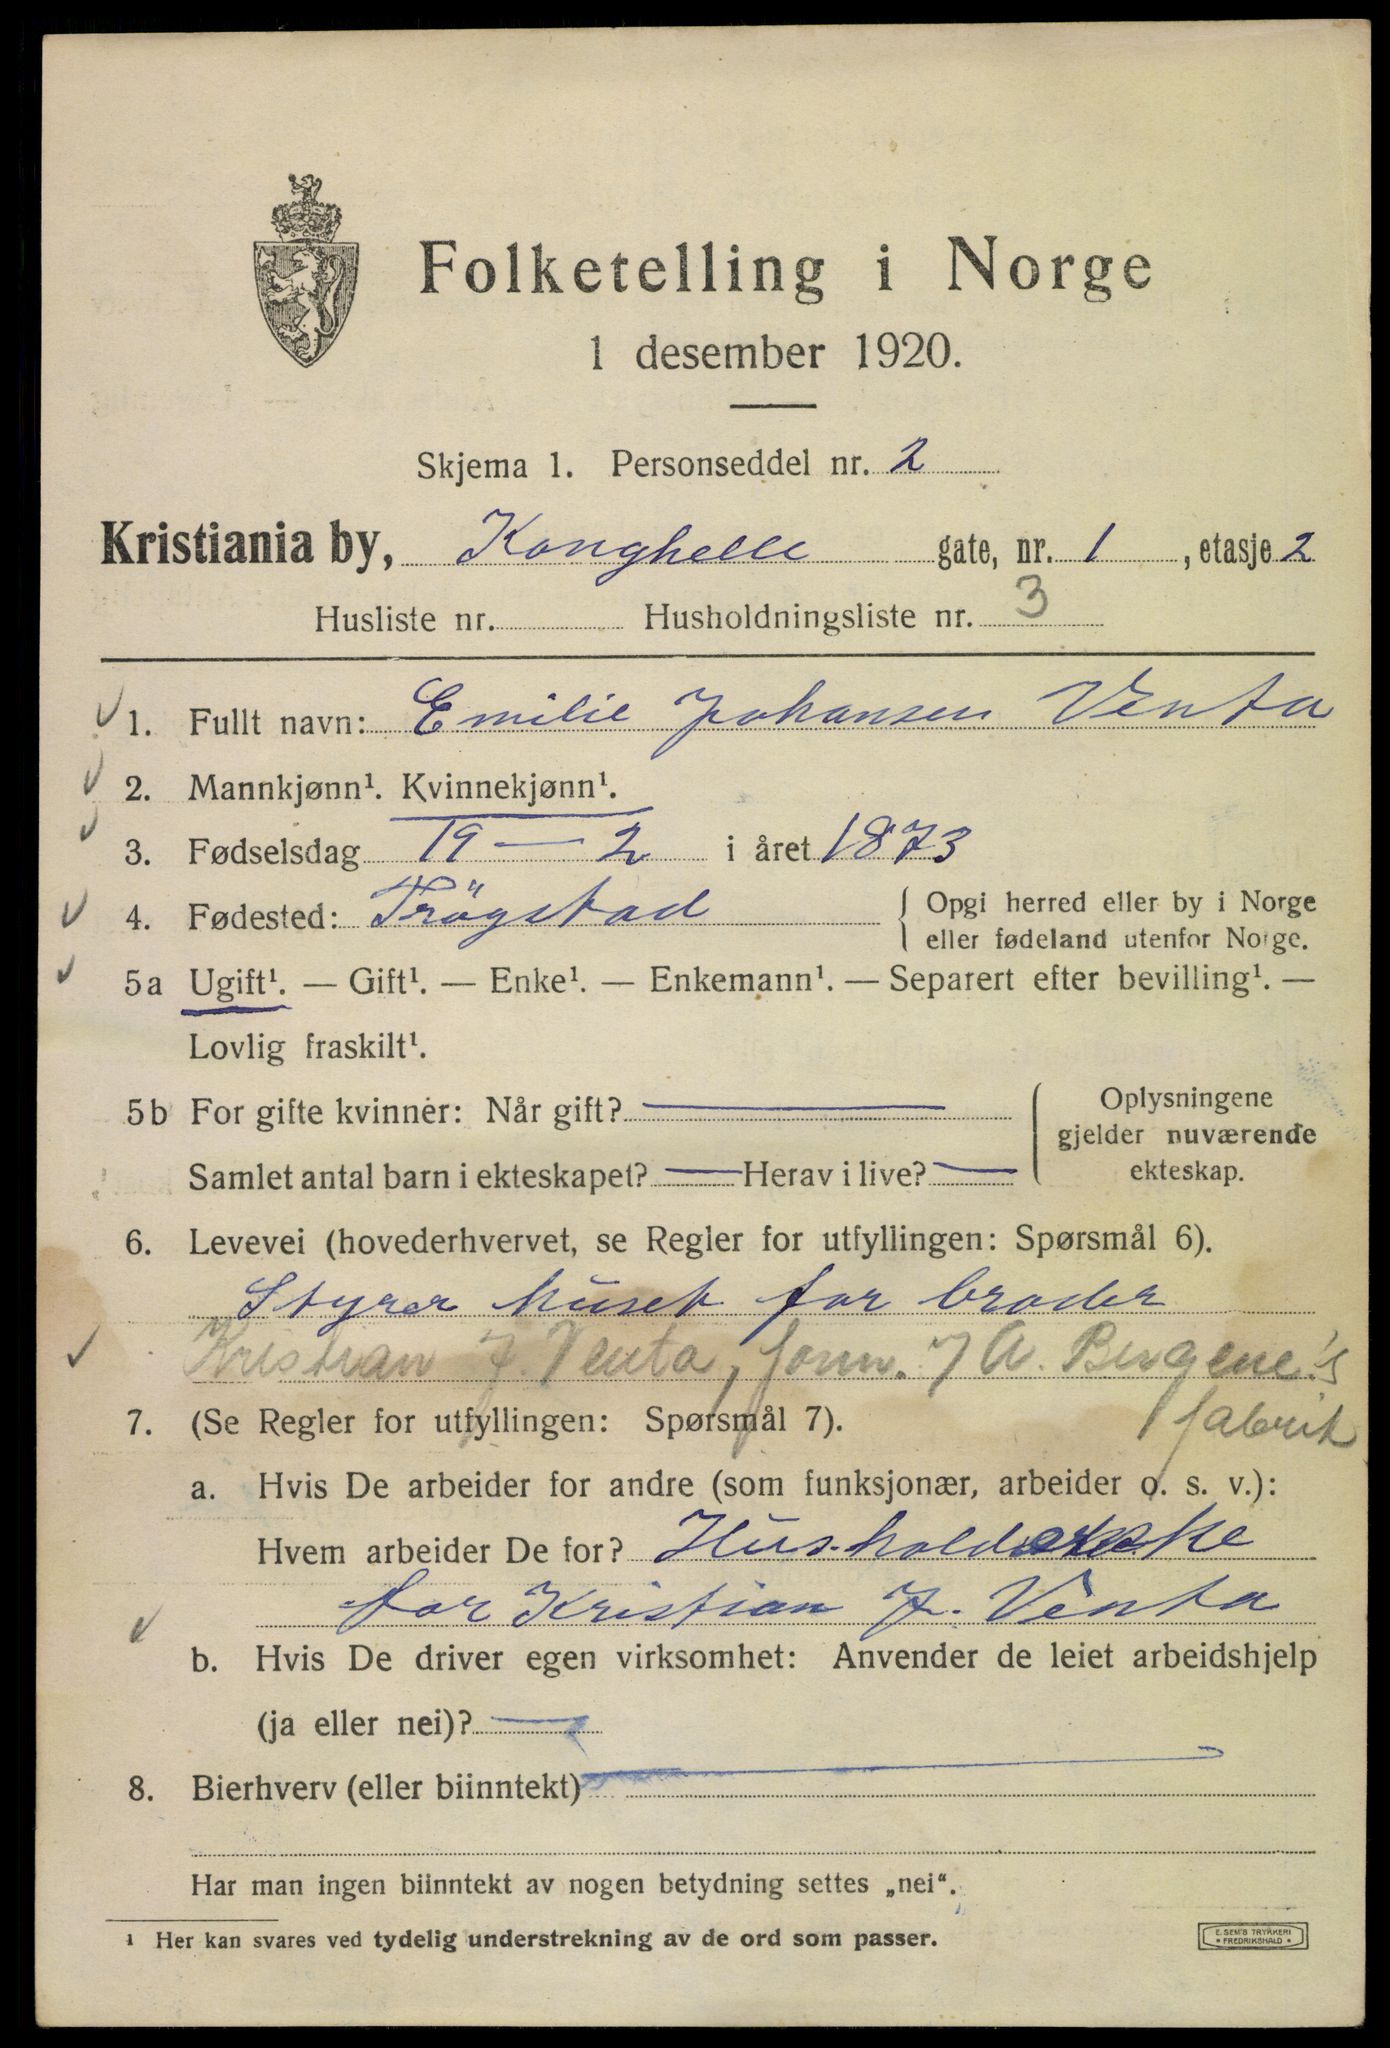 Folketelling i Norge
1 desember 1920.
Skjema 1. Personseddel nr. 2
Kristiania by, Konghelle gate, nr. 1, etasje 2
Husliste nr. Husholdningsliste nr. 3
1. Fullt navn: Emilie Johansen Venta
2. Mannkjønn¹. Kvinnekjønn¹.
3. Fødselsdag 19 — 2 i året 1873
4. Fødested: Trögstad { Opgi herred eller by i Norge
eller fødeland utenfor Norge.
5a Ugift¹. — Gift¹. — Enke¹. — Enkemann¹. — Separert efter bevilling¹. —
Lovlig fraskilt¹.
5b For gifte kvinner: Når gift? —
Samlet antal barn i ekteskapet? — Herav i live? —
Oplysningene
gjelder nuværende
ekteskap.
6. Levevei (hovederhvervet, se Regler for utfyllingen: Spørsmål 6).
Styrer huset for broder
Kristian J. Venta, form. J A. Bergene's
fabrik
7. (Se Regler for utfyllingen: Spørsmål 7).
a. Hvis De arbeider for andre (som funksjonær, arbeider o. s. v.):
Hvem arbeider De for?
for Kristian J. Venta
b. Hvis De driver egen virksomhet: Anvender de leiet arbeidshjelp
(ja eller nei)? —
8. Bierhverv (eller biinntekt) —
Har man ingen biinntekt av nogen betydning settes „nei“.
¹ Her kan svares ved tydelig understrekning av de ord som passer.
E. SEM'S TRYKKERI
• FREDRIKSHALD •